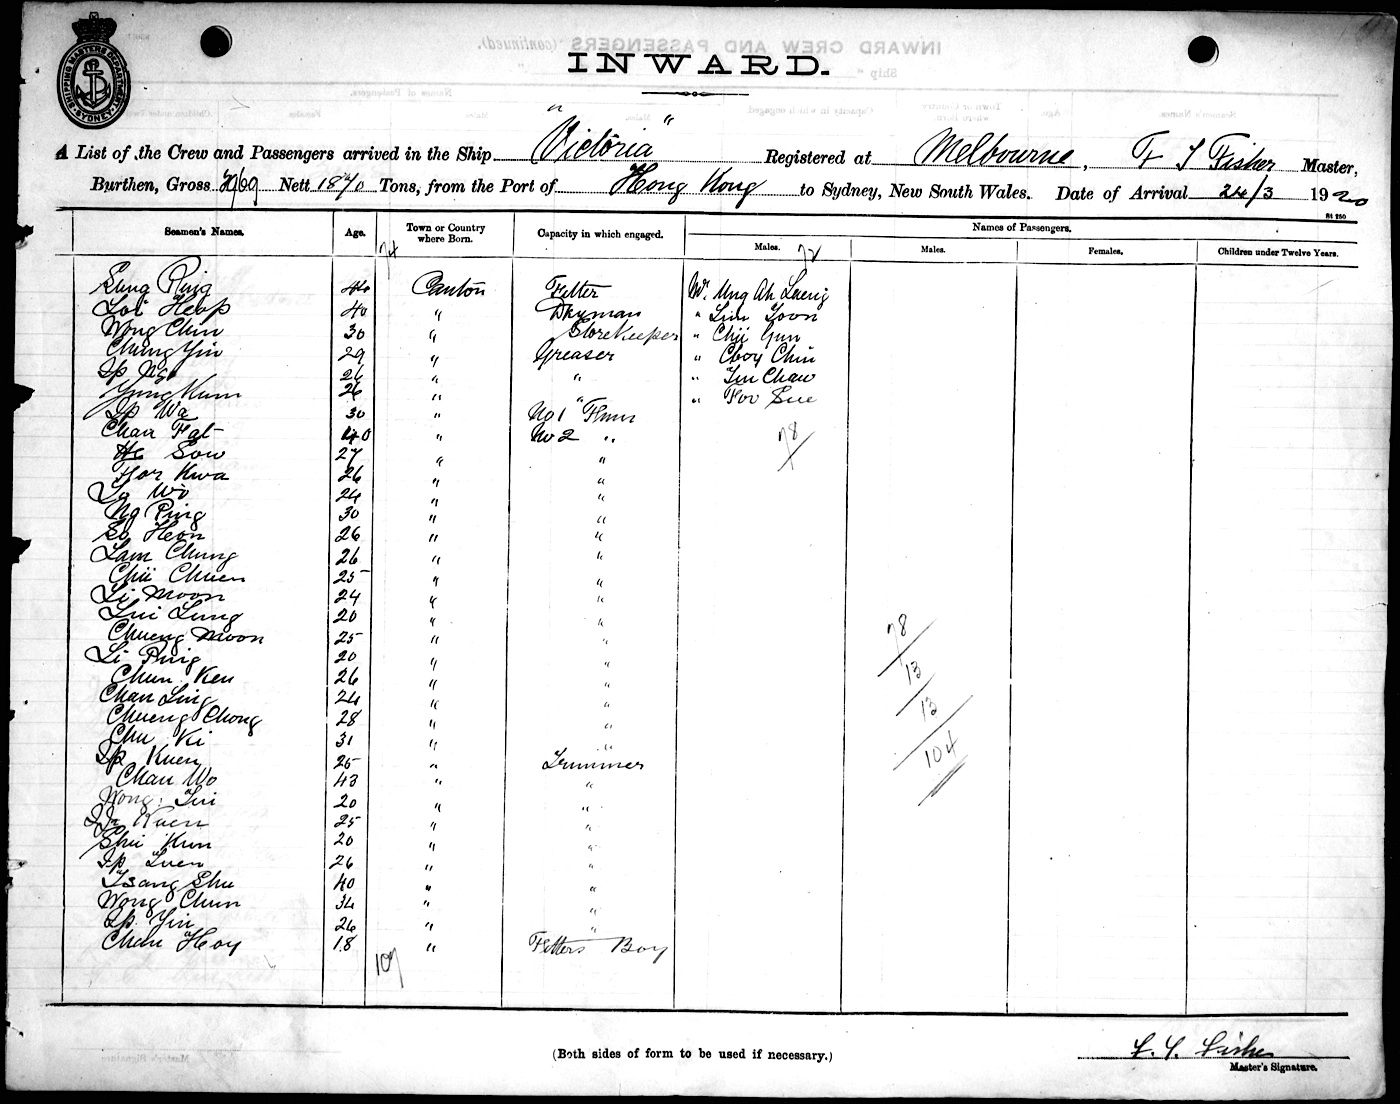 SHIPPING MASTERS DEPARTMENT SYDNEY
INWARD.
A List of the Crew and Passengers arrived in the Ship "Victoria" Registered at Melbourne, F J Fisher Master,
Burthen, Gross 2969 Nett 1870 Tons, from the Port of Hong Kong to Sydney, New South Wales. Date of Arrival 24/3 1920
Seamen's Names. Age. Town or Country where Born. Capacity in which engaged. Names of Passengers.
Males. Males. Females. Children under Twelve Years.
74 72
Sung Ping 46 Canton Fitter Mr. Ung Ah Laeng
Loi Heap 40 " Dkyman " Lim Yoon
Wong Chun 30 " Storekeeper " Chii Gun
Chung Yin 29 " Greaser " Choy Chin
Ip Ngo 26 " " " Lui Chaw
Yung Kum 26 " " " Foo Sue
Ip Wa 30 " No 1 Fmn
Chan Fat 40 " No 2 "
78
Ho Sow 27 " "
Hor Kwa 26 " "
Lo Wo 24 " "
Ng Ping 30 " "
So Heon 26 " "
Lam Chung 26 " "
Chii Chuen 25 " "
Li Moon 24 " "
Lui Lung 20 " "
Chueng Moon 25 " "
78
Li Ping 20 " "
13
Chun Ken 26 " "
Chan Ling 24 " "
13
Chueng Chong 28 " "
Chu Ki 31 " "
104
Ip Kuen 25 " Trimmer
Chan Wo 43 " "
Wong Lui 20 " "
Kuen 25 " "
Shu Kun 20 " "
Ip Luen 26 " "
Tsang Shu 40 " "
Wong Chun 34 " "
Ip Yin 26 " "
Chan Hoy 18 " Fitters Boy
109
(Both sides of form to be used if necessary.)
F. J. Fisher
Master's Signature.